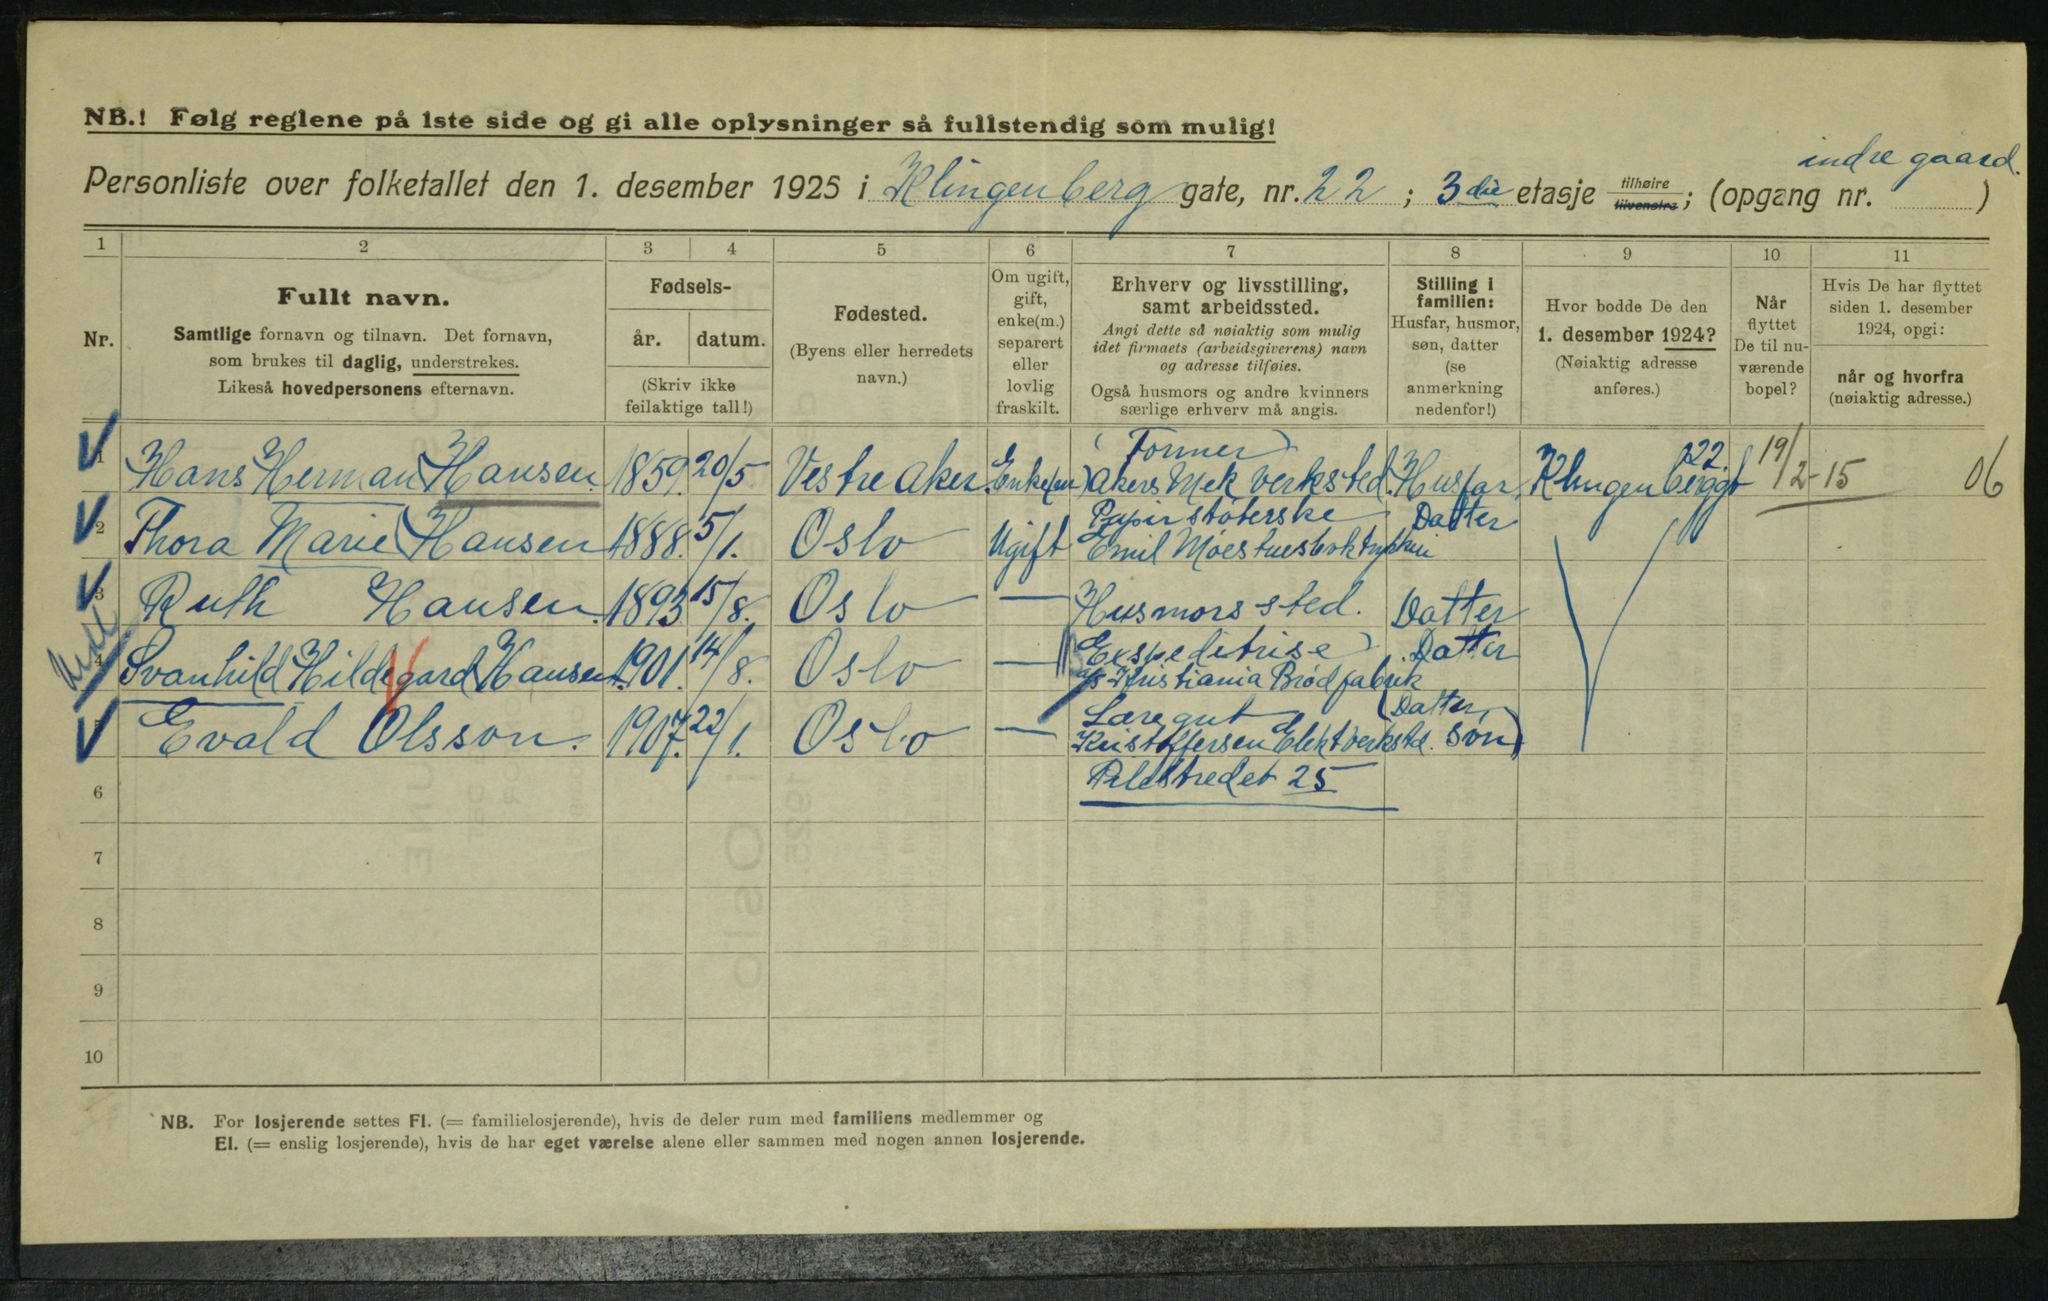 NB.! Følg reglene på 1ste side og gi alle oplysninger så fullstendig som mulig!
indre gaard.
Personliste over folketallet den 1. desember 1925 i Klingenberg gate, nr. 22; 3die etasje tilhøire tilvenstre; (opgang nr. )
1 2 3 4 5 6 7 8 9 10 11
Nr.
Fullt navn.
Samtlige fornavn og tilnavn. Det fornavn,
som brukes til daglig, understrekes.
Likeså hovedpersonens efternavn.
Fødsels-
år. datum.
(Skriv ikke
feilaktige tall!)
Fødested.
(Byens eller herredets
navn.)
Om ugift,
gift,
enke(m.)
separert
eller
lovlig
fraskilt.
Erhverv og livsstilling,
samt arbeidssted.
Angi dette så nøiaktig som mulig
idet firmaets (arbeidsgiverens) navn
og adresse tilføies.
Også husmors og andre kvinners
særlige erhverv må angis.
Stilling i
familien:
Husfar, husmor,
søn, datter
(se
anmerkning
nedenfor!)
Hvor bodde De den
1. desember 1924?
(Nøiaktig adresse
anføres.)
Når
flyttet
De til nu-
værende
bopel?
Hvis De har flyttet
siden 1. desember
1924, opgi:
når og hvorfra
(nøiaktig adresse.)
1 Hans Herman Hansen. 1859. 20/5 Vestre Aker. Enke(m) (Former) Akers Mek Verksted. Husfar. Klingenberggt 22. 19/2-15 06
2 Thora Marie Hansen 1888. 5/1. Oslo Ugift Datter
Emil Moestues
3 Ruth Hansen. 1893 15/8. Oslo — Husmors sted. Datter
4 Svanhild Hildegard Hansen. 1901. 14/8. Oslo — Ekspeditrise Datter
A/s Kristiania Brødfabrik
5 Evald Olsson. 1907. 22/1. Oslo — Læregut (Datter,
Kristoffersen Elekt verksted. søn)
Pilestredet 25
6
7
8
9
10
NB. For losjerende settes Fl. (= familielosjerende), hvis de deler rum med familiens medlemmer og
El. (= enslig losjerende), hvis de har eget værelse alene eller sammen med nogen annen losjerende.